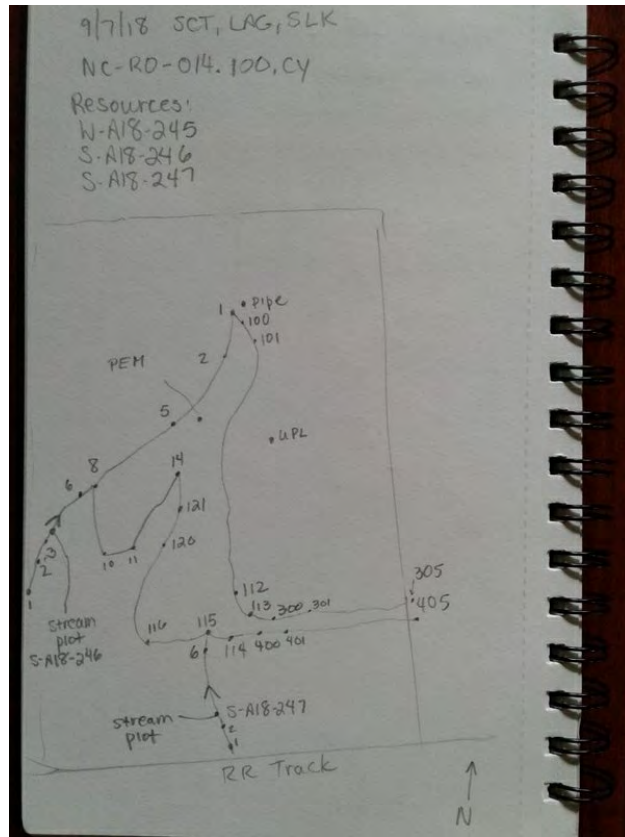 9/7/18 SCT, LAG, SLK
NC-RO-014.100.CY
Resources:
W-A18-245
S-A18-246
S-A18-247
1 Pipe
100
101
2
PEM
5
UPL
8
14
6
121
3
120
2
10 11
1
112
305
113 300 301
405
stream
plot
S-A18-246
116
115
6
114 400 401
stream
plot
S-A18-247
2
1
RR Track
N